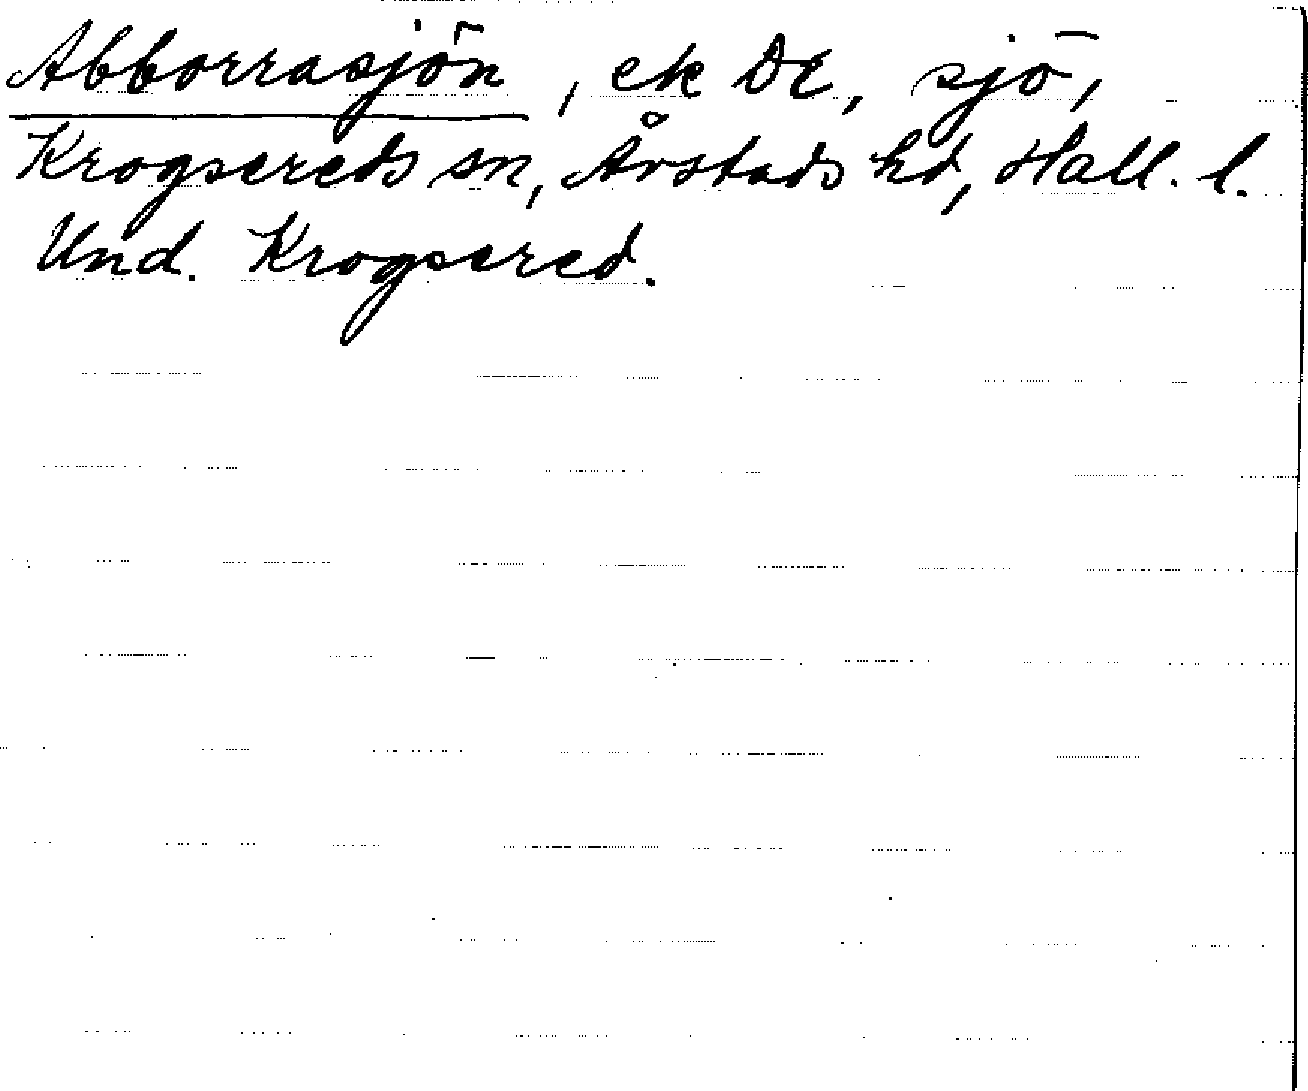 Abborrasjön, ek DE, sjö,
Krogsereds sn, Årstads hd, Hall. l.
Und. Krogsered.